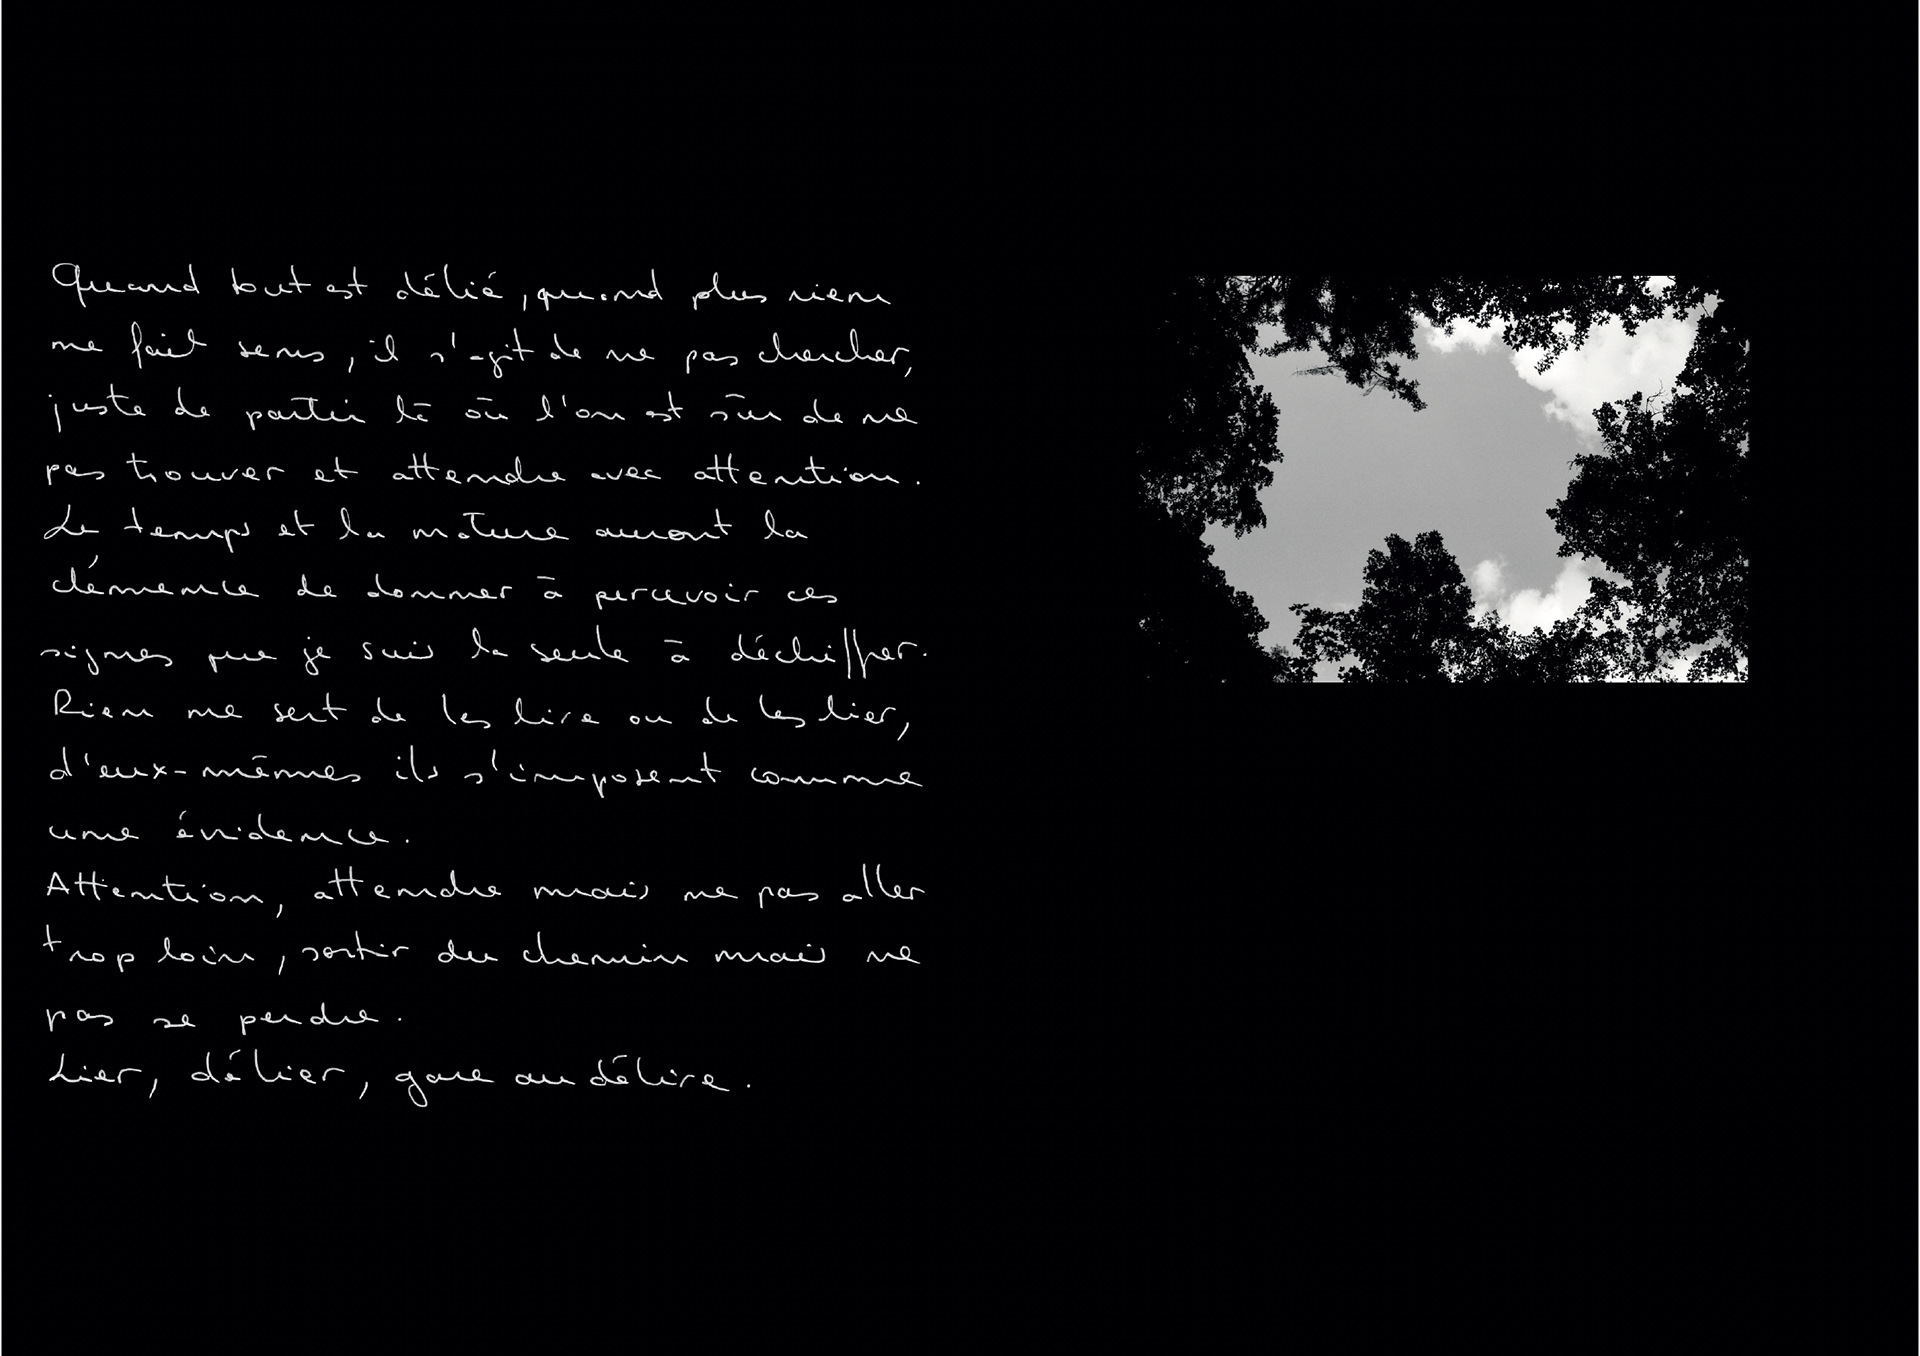 Quand tout est délié, quand plus rien
ne fait sens, il s'agit de ne pas chercher,
juste de partir là où l'on est sûr de ne
pas trouver et attendre avec attention.
Le temps et la nature auront la
clémence de donner à percevoir ces
signes que je suis la seule à déchiffrer.
Rien ne sert de les lire ou de les lier,
d'eux-mêmes ils s'imposent comme
une évidence.
Attention, attendre mais ne pas aller
trop loin, sortir du chemin mais ne
pas se perdre.
Lier, délier, gare au délire.